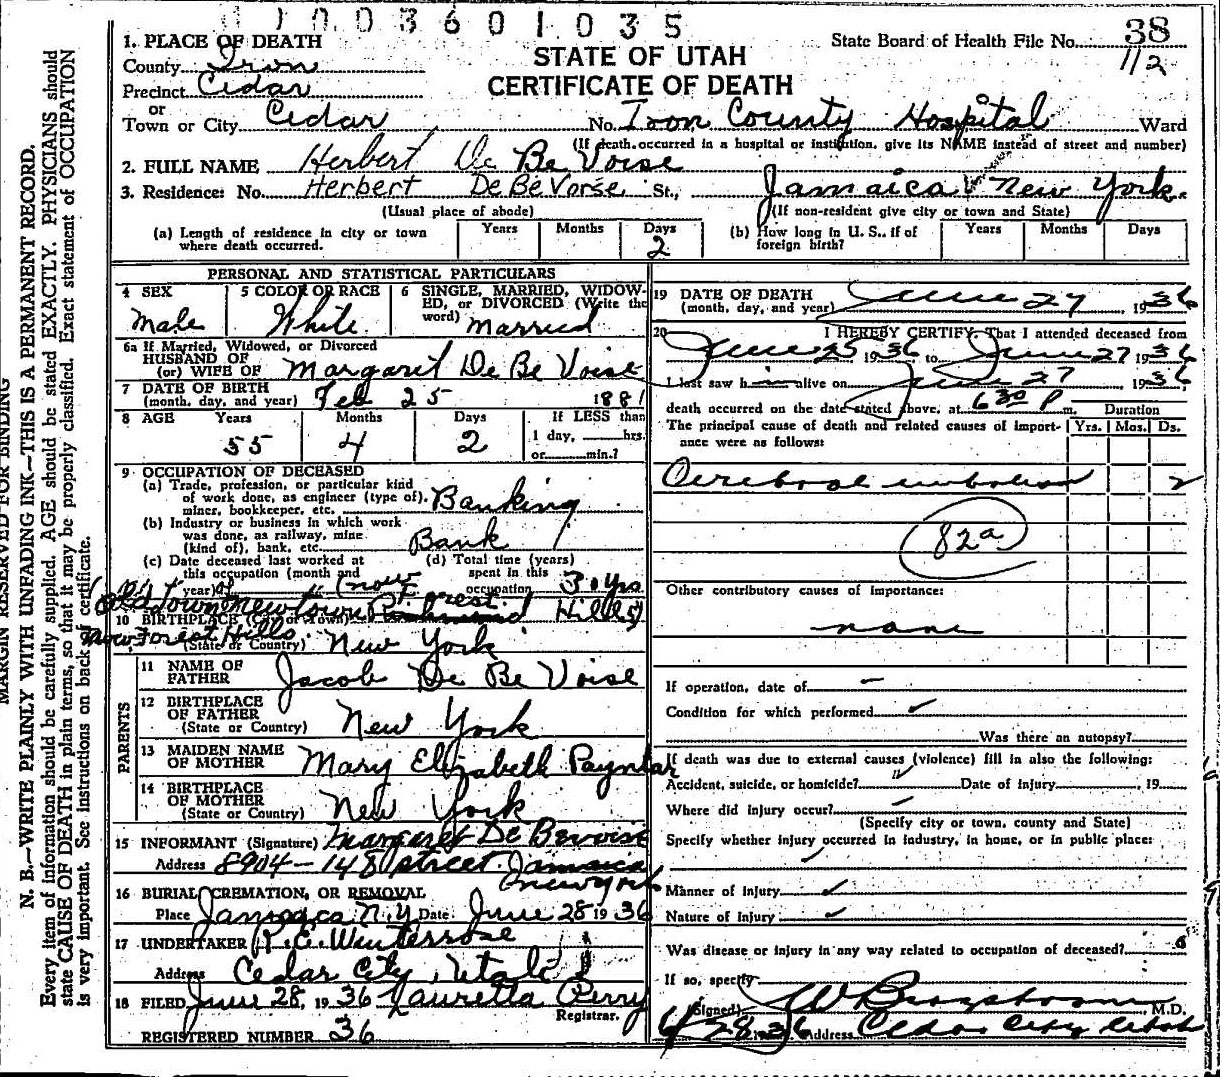 01003601035
38
112
State Board of Health File No.
STATE OF UTAH
CERTIFICATE OF DEATH
1. PLACE OF DEATH
County Iron
Precinct Cedar
or
Town or City Cedar No. Iron County Hospital Ward
(If death occurred in a hospital or institution, give its NAME instead of street and number)
2. FULL NAME Herbert De Be Voise
3. Residence: No. Herbert De Be Vorse St., Jamaica New York.
(Usual place of abode) (If non-resident give city or town and State)
(a) Length of residence in city or town where death occurred. Years Months Days 2
(b) How long in U. S., if of foreign birth? Years Months Days
PERSONAL AND STATISTICAL PARTICULARS
4 SEX Male
5 COLOR OR RACE White
6 SINGLE, MARRIED, WIDOW-
ED, or DIVORCED (Write the
word) Married
6a If Married, Widowed, or Divorced
HUSBAND OF
(or) WIFE OF Margaret De Be Voise
7 DATE OF BIRTH
(month, day, and year) Feb 25 1881
8 AGE Years 55 Months 4 Days 2
If LESS than
1 day, hrs.
or min.?
9 OCCUPATION OF DECEASED
(a) Trade, profession, or particular kind
of work done, as engineer (type of),
miner, bookkeeper, etc. Banking
(b) Industry or business in which work
was done, as railway, mine
(kind of), bank, etc. Bank
(c) Date deceased last worked at
this occupation (month and
year)
(d) Total time (years)
spent in this
occupation 30 yrs
Old Town Newtown (now Forest Hills)
10 BIRTHPLACE (City or Town)
now Forest Hills
(State or Country) New York
PARENTS
11 NAME OF
FATHER Jacob De Be Voise
12 BIRTHPLACE
OF FATHER
(State or Country) New York
13 MAIDEN NAME
OF MOTHER Mary Elizabeth Payntar
14 BIRTHPLACE
OF MOTHER
(State or Country) New York
15 INFORMANT (Signature) Margaret De Bevoise
Address 8904-148 street Jamaica
New York
16 BURIAL, CREMATION, OR REMOVAL
Place Jamaica N.Y Date June 28 1936
17 UNDERTAKER R.E. Winterrose
Address Cedar City, Utah
18 FILED June 28, 1936 Lauretta Perry
Registrar.
REGISTERED NUMBER 36
19 DATE OF DEATH
(month, day, and year) June 27, 1936
20 I HEREBY CERTIFY, That I attended deceased from
June 25 1936 to June 27 1936
I last saw him alive on June 27 1936
death occurred on the date stated above, at 6 30 P m.
Duration
The principal cause of death and related causes of import-
ance were as follows: Yrs. Mos. Ds.
Cerebral embolism 2
82a
Other contributory causes of importance:
none
If operation, date of
Condition for which performed
Was there an autopsy?
If death was due to external causes (violence) fill in also the following:
Accident, suicide, or homicide? Date of injury , 19
Where did injury occur?
(Specify city or town, county and State)
Specify whether injury occurred in industry, in home, or in public place:
Manner of injury
Nature of injury
Was disease or injury in any way related to occupation of deceased?
If so, specify
(Signed) , M.D.
6/28 1936 Address Cedar City Utah
MARGIN RESERVED FOR BINDING
N. B.—WRITE PLAINLY WITH UNFADING INK—THIS IS A PERMANENT RECORD.
Every item of information should be carefully supplied. AGE should be stated EXACTLY. PHYSICIANS should
state CAUSE OF DEATH in plain terms, so that it may be properly classified. Exact statement of OCCUPATION
is very important. See instructions on back of certificate.